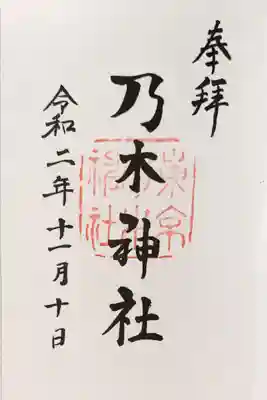 奉拝
乃木神社
令和二年十一月十日